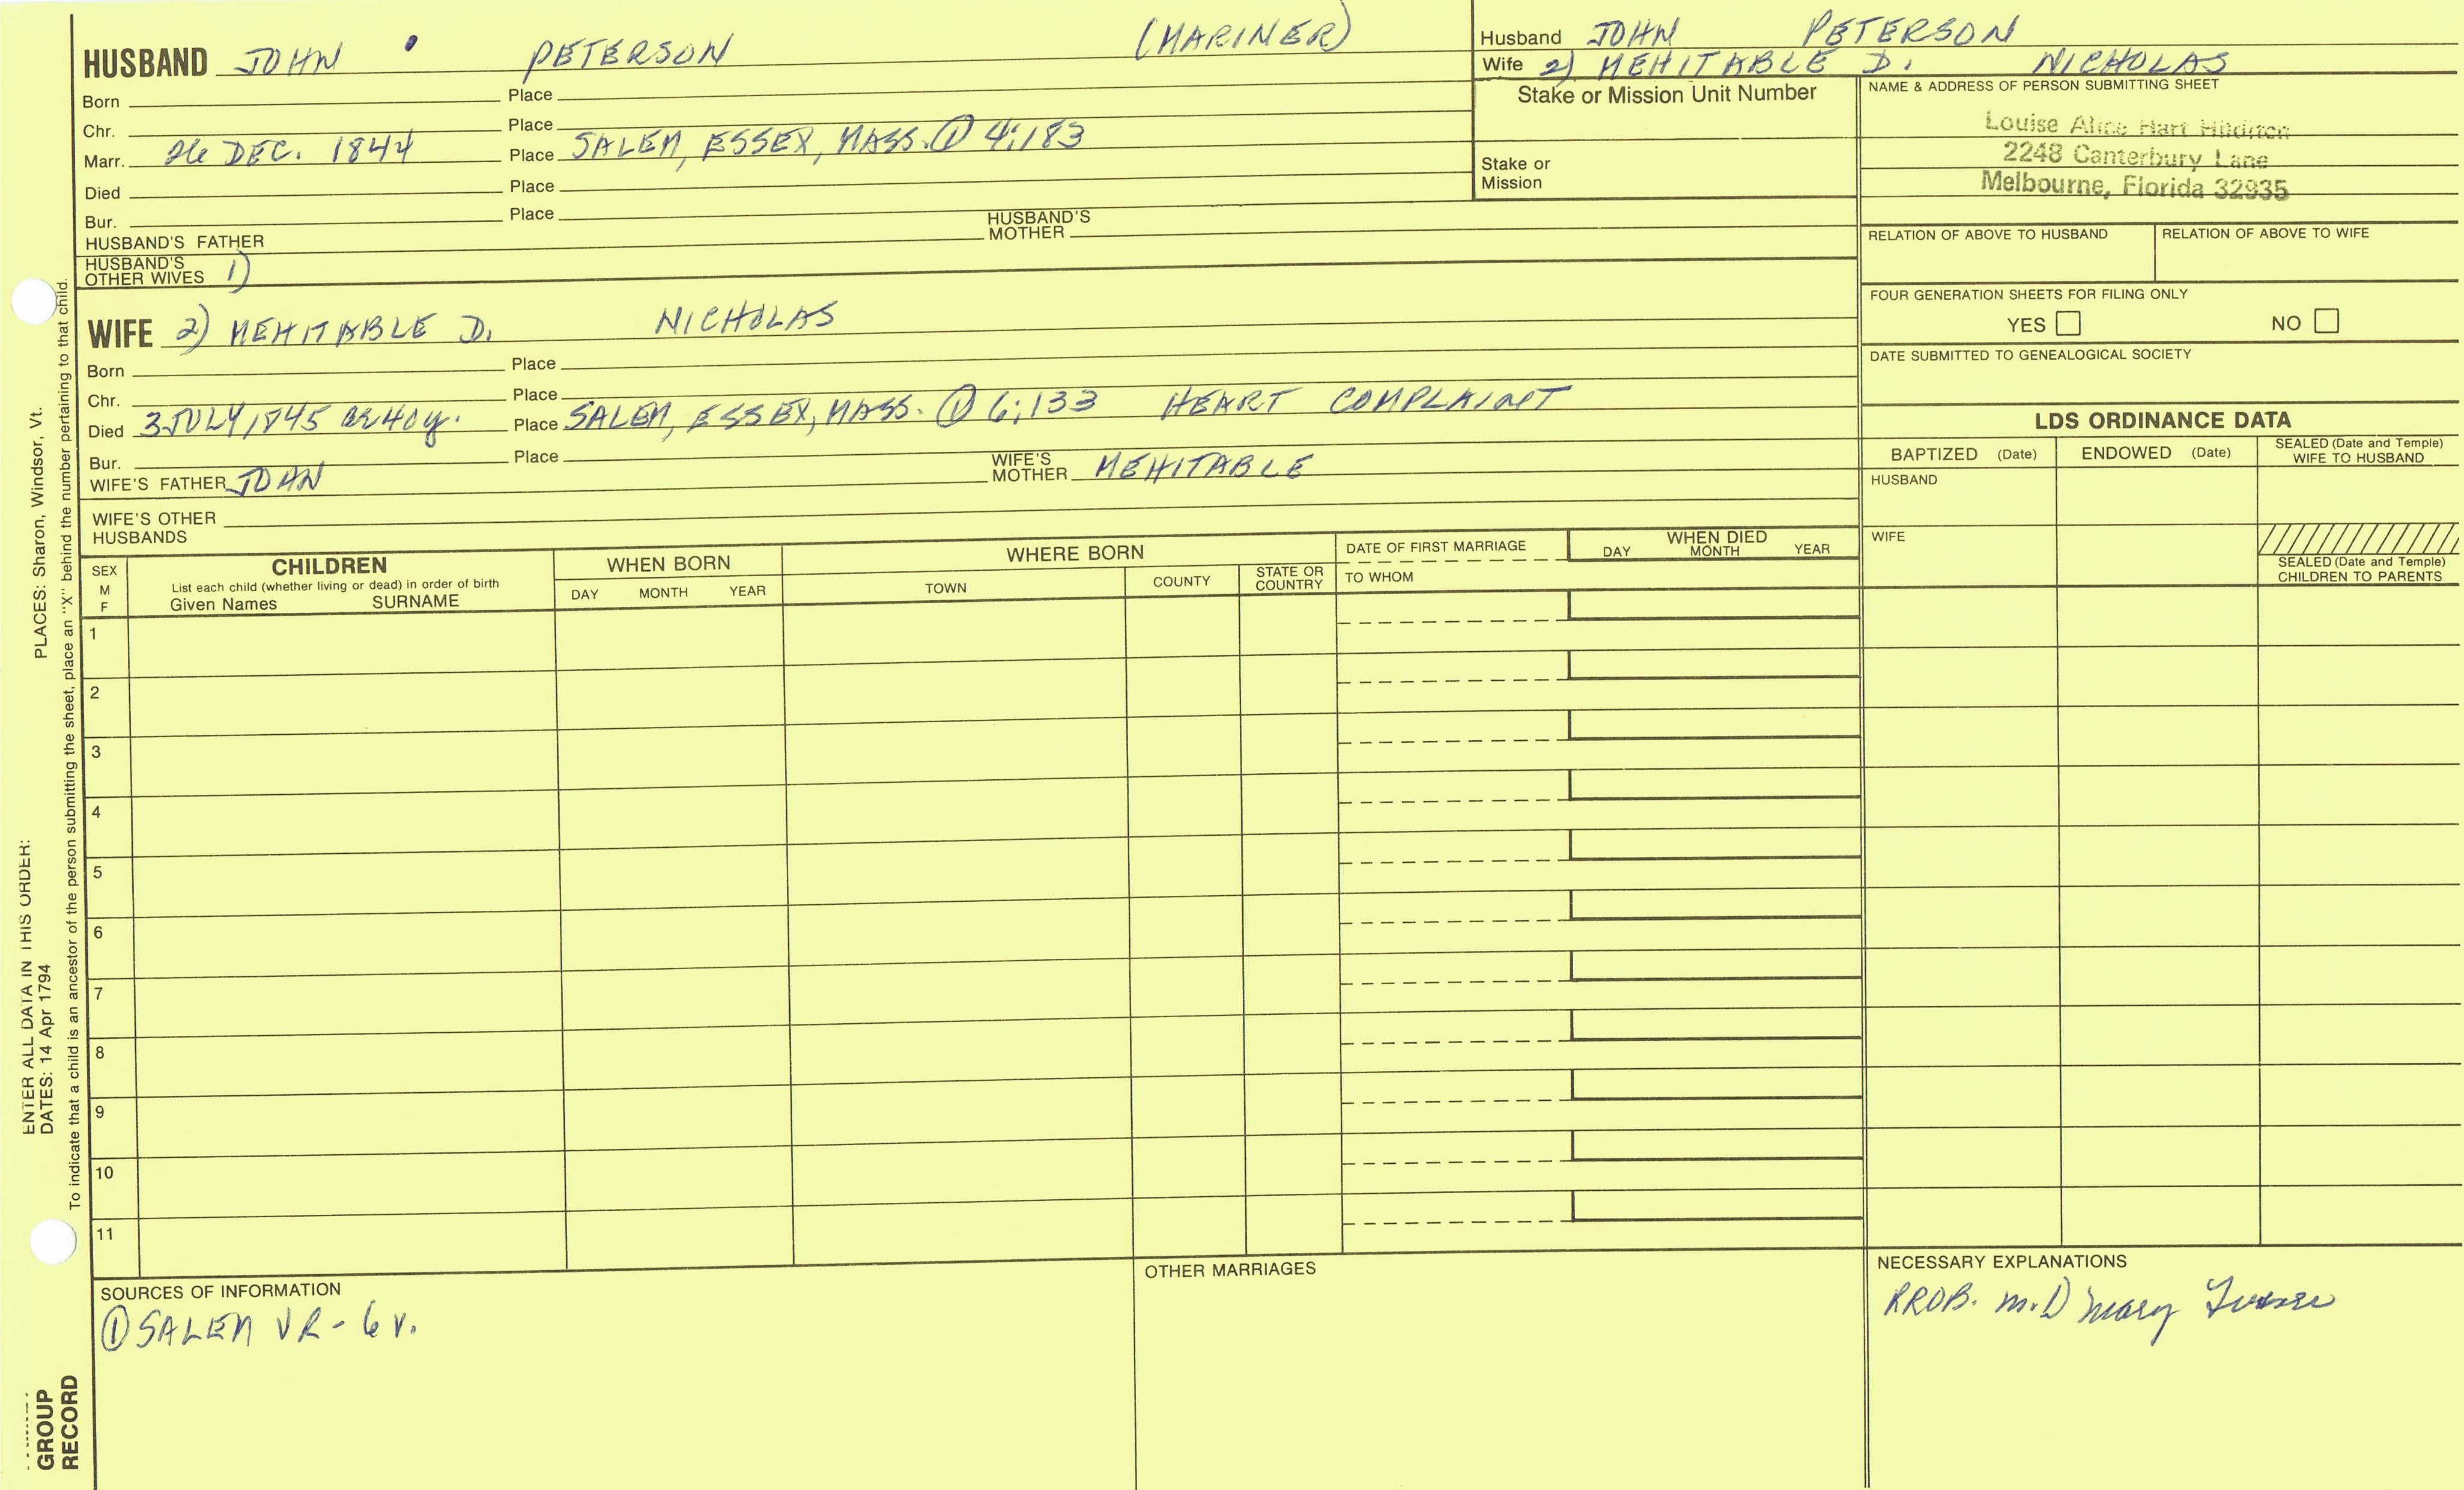 HUSBAND JOHN PETERSON (MARINER)
Born Place
Chr. Place
Marr. 26 DEC. 1844 Place SALEM, ESSEX, MASS. ① 4:183
Died Place
Bur. Place
HUSBAND'S FATHER HUSBAND'S MOTHER
HUSBAND'S OTHER WIVES 1)
WIFE 2) MEHITABLE D. NICHOLAS
Born Place
Chr. Place
Died 3 JULY 1845 ae 40y. Place SALEM, ESSEX, MASS. ① 6:133 HEART COMPLAINT
Bur. Place
WIFE'S FATHER JOHN WIFE'S MOTHER MEHITABLE
WIFE'S OTHER HUSBANDS
Husband JOHN PETERSON
Wife 2) MEHITABLE D. NICHOLAS
Stake or Mission Unit Number
Stake or
Mission
NAME & ADDRESS OF PERSON SUBMITTING SHEET
Louise Alice Hart
2248 Canterbury Lane
Melbourne, Florida 32935
RELATION OF ABOVE TO HUSBAND RELATION OF ABOVE TO WIFE
FOUR GENERATION SHEETS FOR FILING ONLY
YES NO
DATE SUBMITTED TO GENEALOGICAL SOCIETY
LDS ORDINANCE DATA
BAPTIZED (Date) ENDOWED (Date) SEALED (Date and Temple) WIFE TO HUSBAND
HUSBAND
WIFE
SEALED (Date and Temple) CHILDREN TO PARENTS
SEX
M
F
CHILDREN
List each child (whether living or dead) in order of birth
Given Names SURNAME
WHEN BORN
DAY MONTH YEAR
WHERE BORN
TOWN COUNTY STATE OR COUNTRY
DATE OF FIRST MARRIAGE
TO WHOM
WHEN DIED
DAY MONTH YEAR
1
2
3
4
5
6
7
8
9
10
11
SOURCES OF INFORMATION
① SALEM VR - 6 v.
OTHER MARRIAGES
NECESSARY EXPLANATIONS
PROB. m. 1) Mary
ENTER ALL DATA IN THIS ORDER:
DATES: 14 Apr 1794
PLACES: Sharon, Windsor, Vt.
To indicate that a child is an ancestor of the person submitting the sheet, place an "X" behind the number pertaining to that child.
GROUP
RECORD